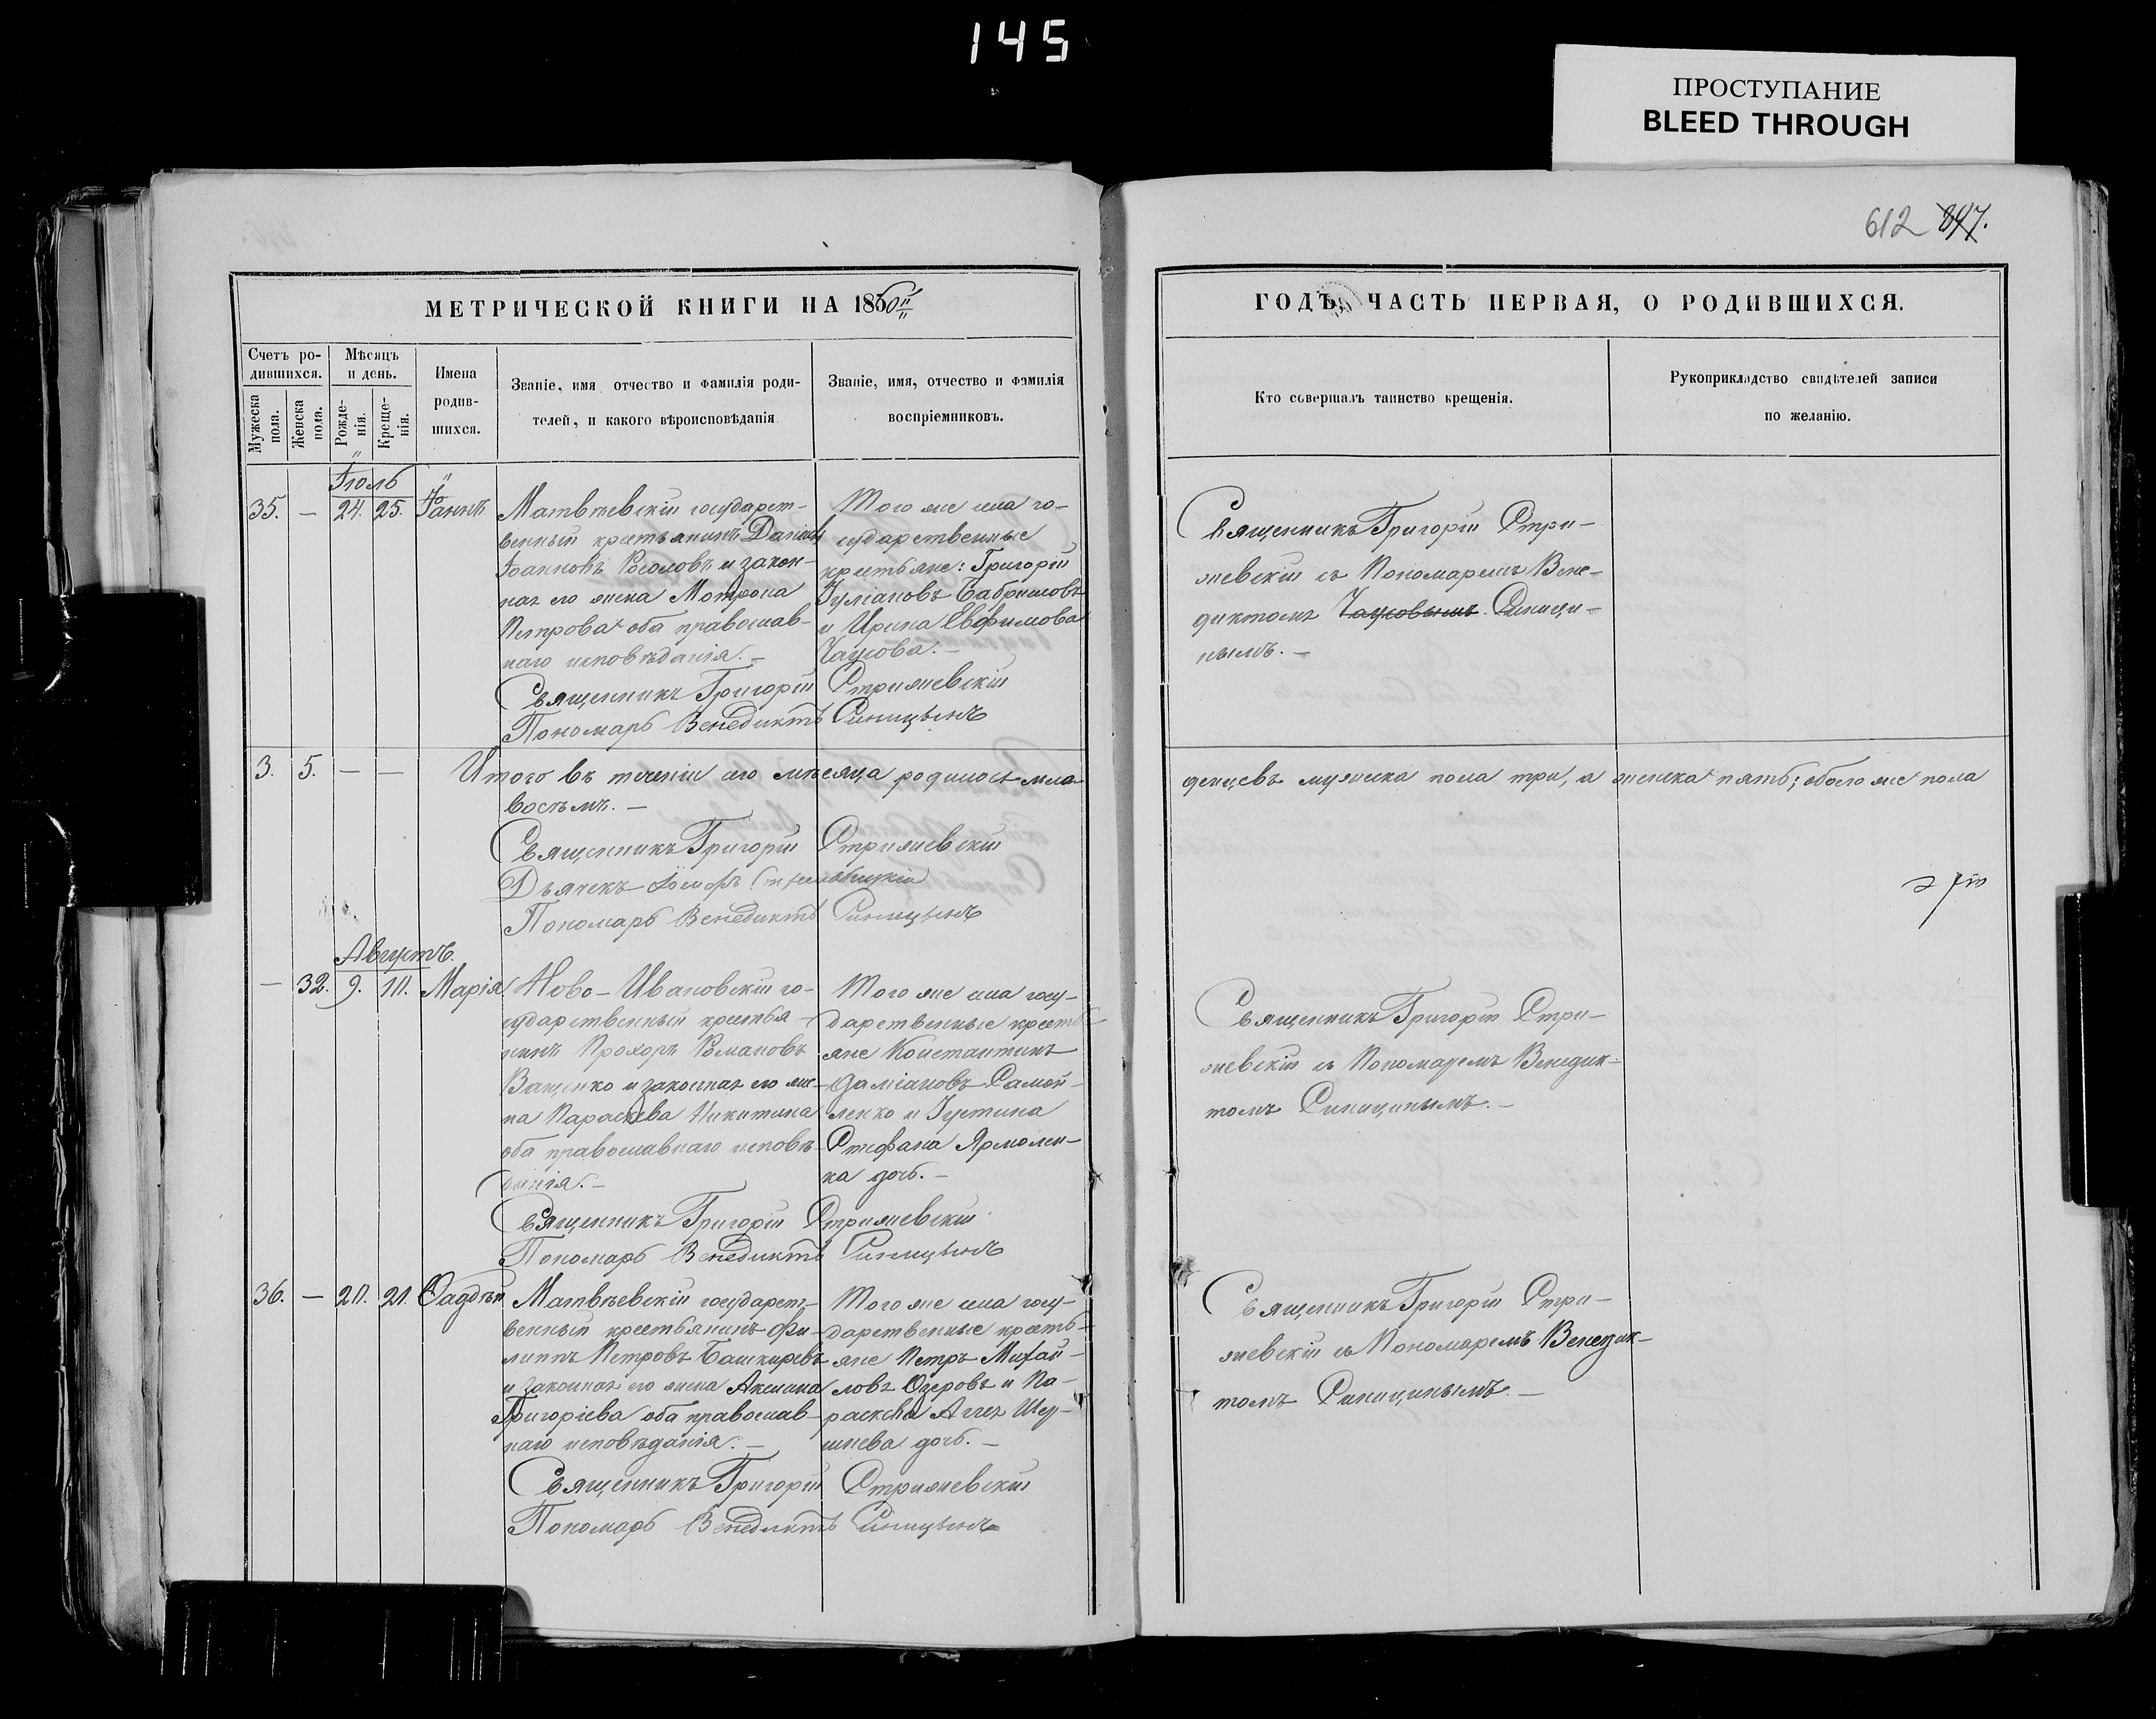 145
ПРОСТУПАНИЕ
BLEED THROUGH
612 847.
МЕТРИЧЕСКОЙ КНИГИ НА 1860
ГОДЪ, ЧАСТЬ ПЕРВАЯ, О РОДИВШИХСЯ.
Счетъ ро-
дившихся.
Мужеска пола.
Женска пола.
Мѣсяцъ
и день.
Рожде-
нія.
Креще-
нія.
Имена
родив-
шихся.
Званіе, имя отчество и фамилія роди-
телей, и какого вѣроисповѣданія
Званіе, имя, отчество и фамилія
воспріемниковъ.
Кто совершалъ таинство крещенія.
Рукоприкладство свидѣтелей записи
по желанію.
Іюль
35. — 24. 25. Іоаннъ
Матвѣевскій государст-
венный крестьянинъ Даніилъ
Іоанновъ Роголовъ и закон-
ная его жена Мотрона
Петрова оба православ-
наго исповѣданія. —
Того же села го-
сударственные
крестьяне: Григорій
Іуліановъ
и Ирина Евфимова
Чаусова. —
Священникъ Григорій Стрижевскій
Пономарь Венедиктъ Синицынъ
Священникъ Григорій Стри-
жевскій съ Пономаремъ Вене-
диктомъ Чаусовымъ Синици-
нымъ. —
3. 5. — — Итого въ теченіи сего мѣсяца родилось мла
денцевъ мужеска пола три, а женска пять; обоего же пола
восемь. —
Священникъ Григорій Стрижевскій
Дьячекъ
Пономарь Венедиктъ Синицынъ
Августъ.
— 32. 9. 10. Марія
Ново-Ивановскій го-
сударственный крестья-
нинъ Прохоръ Романовъ
Ващенко и законная его же-
на Параскева Никитина
оба православнаго исповѣ-
данія. —
Того же села госу-
дарственные кресть-
яне Константинъ
Даміановъ Самой-
ленко и Іустина
Стефана Ярмолен-
ка дочь. —
Священникъ Григорій Стрижевскій
Пономарь Венедиктъ Синицынъ
Священникъ Григорій Стри-
жевскій съ Пономаремъ Венедик-
томъ Синицинымъ. —
36. — 20. 21. Фаддѣй
Матвѣевскій государст-
венный крестьянинъ Фи-
липпъ Петровъ Башкиревъ
и законная его жена Аксинья
Григоріева оба православ-
наго исповѣданія. —
Того же села госу-
дарственные кресть-
яне Петръ Михай-
ловъ Озеровъ и Па-
раскева
дочь. —
Священникъ Григорій Стрижевскій
Пономарь Венедиктъ Синицынъ
Священникъ Григорій Стри-
жевскій съ Пономаремъ Венедик-
томъ Синицинымъ. —